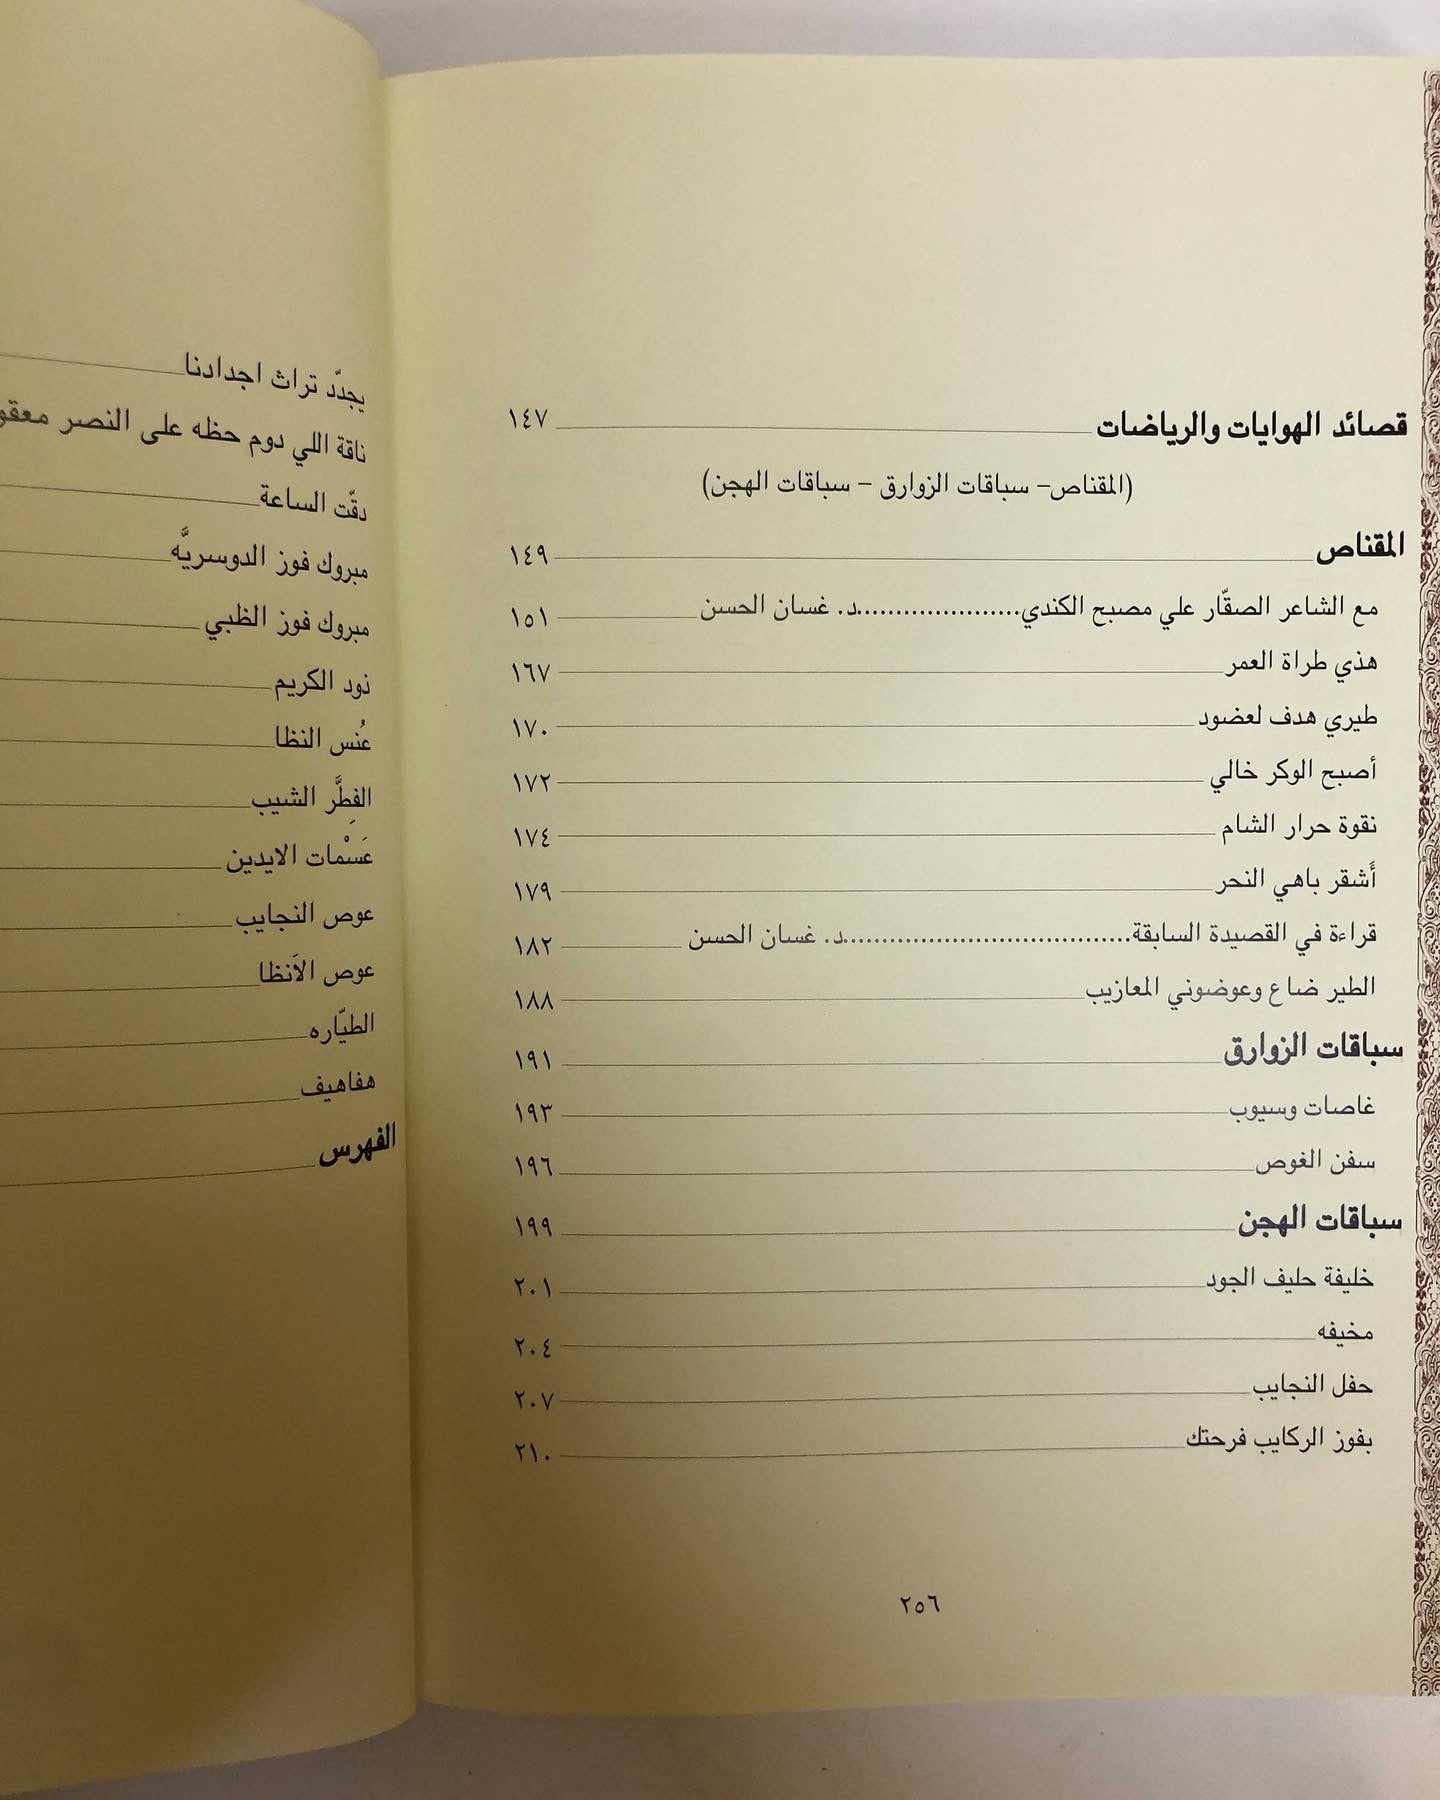 قصائد الهوايات والرياضات ١٤٧
(المقناص- سباقات الزوارق - سباقات الهجن)
المقناص ١٤٩
مع الشاعر الصقّار علي مصبح الكندي.....................د. غسان الحسن ١٥١
هذي طراة العمر ١٦٧
طيري هدف لعضود ١٧٠
أصبح الوكر خالي ١٧٢
نقوة حرار الشام ١٧٤
أشقر باهي النحر ١٧٩
قراءة في القصيدة السابقة.....................................د. غسان الحسن ١٨٢
الطير ضاع وعوضوني المعازيب ١٨٨
سباقات الزوارق ١٩١
غاصات وسيوب ١٩٣
سفن الغوص ١٩٦
سباقات الهجن ١٩٩
خليفة حليف الجود ٢٠١
مخيفه ٢٠٤
حفل النجايب ٢٠٧
بفوز الركايب فرحتك ٢١٠
٢٥٦
يجدّد تراث اجدادنا
ناقة اللي دوم حظه على النصر
دقّت الساعة
مبروك فوز الدوسريَّه
مبروك فوز الظبي
ذود الكريم
عُنس النظا
الفِطَّر الشيب
عَسْمات الايدين
عوص النجايب
عوص الاَنظا
الطيّاره
هفاهيف
الفهرس